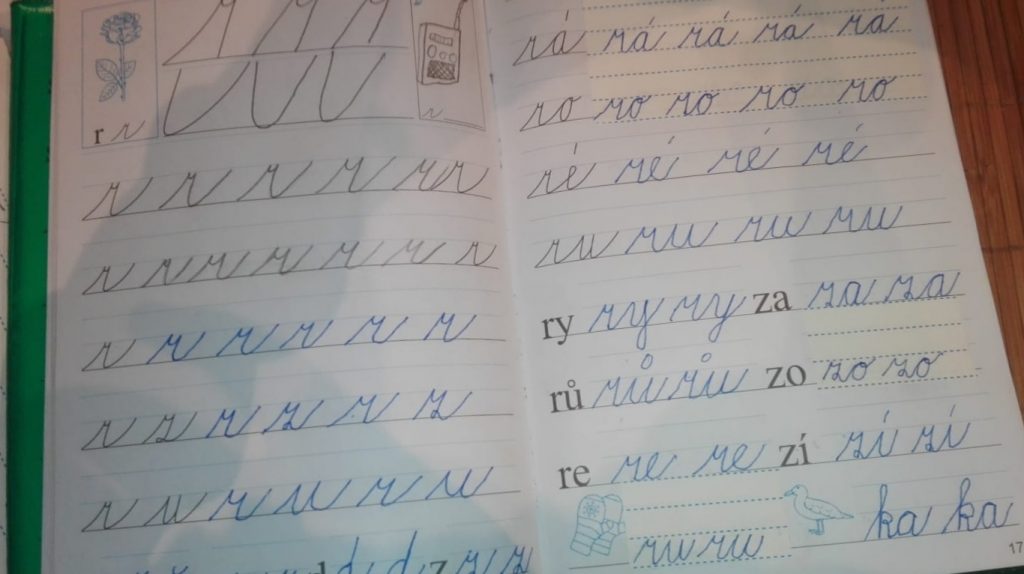 r r r
r r r r r r
r r r r r r r
r r r r r r
r z r z r z
r u r u r u
rá rá rá rá rá
ro ro ro ro ro
ré ré ré ré
ru ru ru ru
ry ry ry za za za
rů rů ru zo zo zo
re re re zí zí zí
ru ru ka ka
17